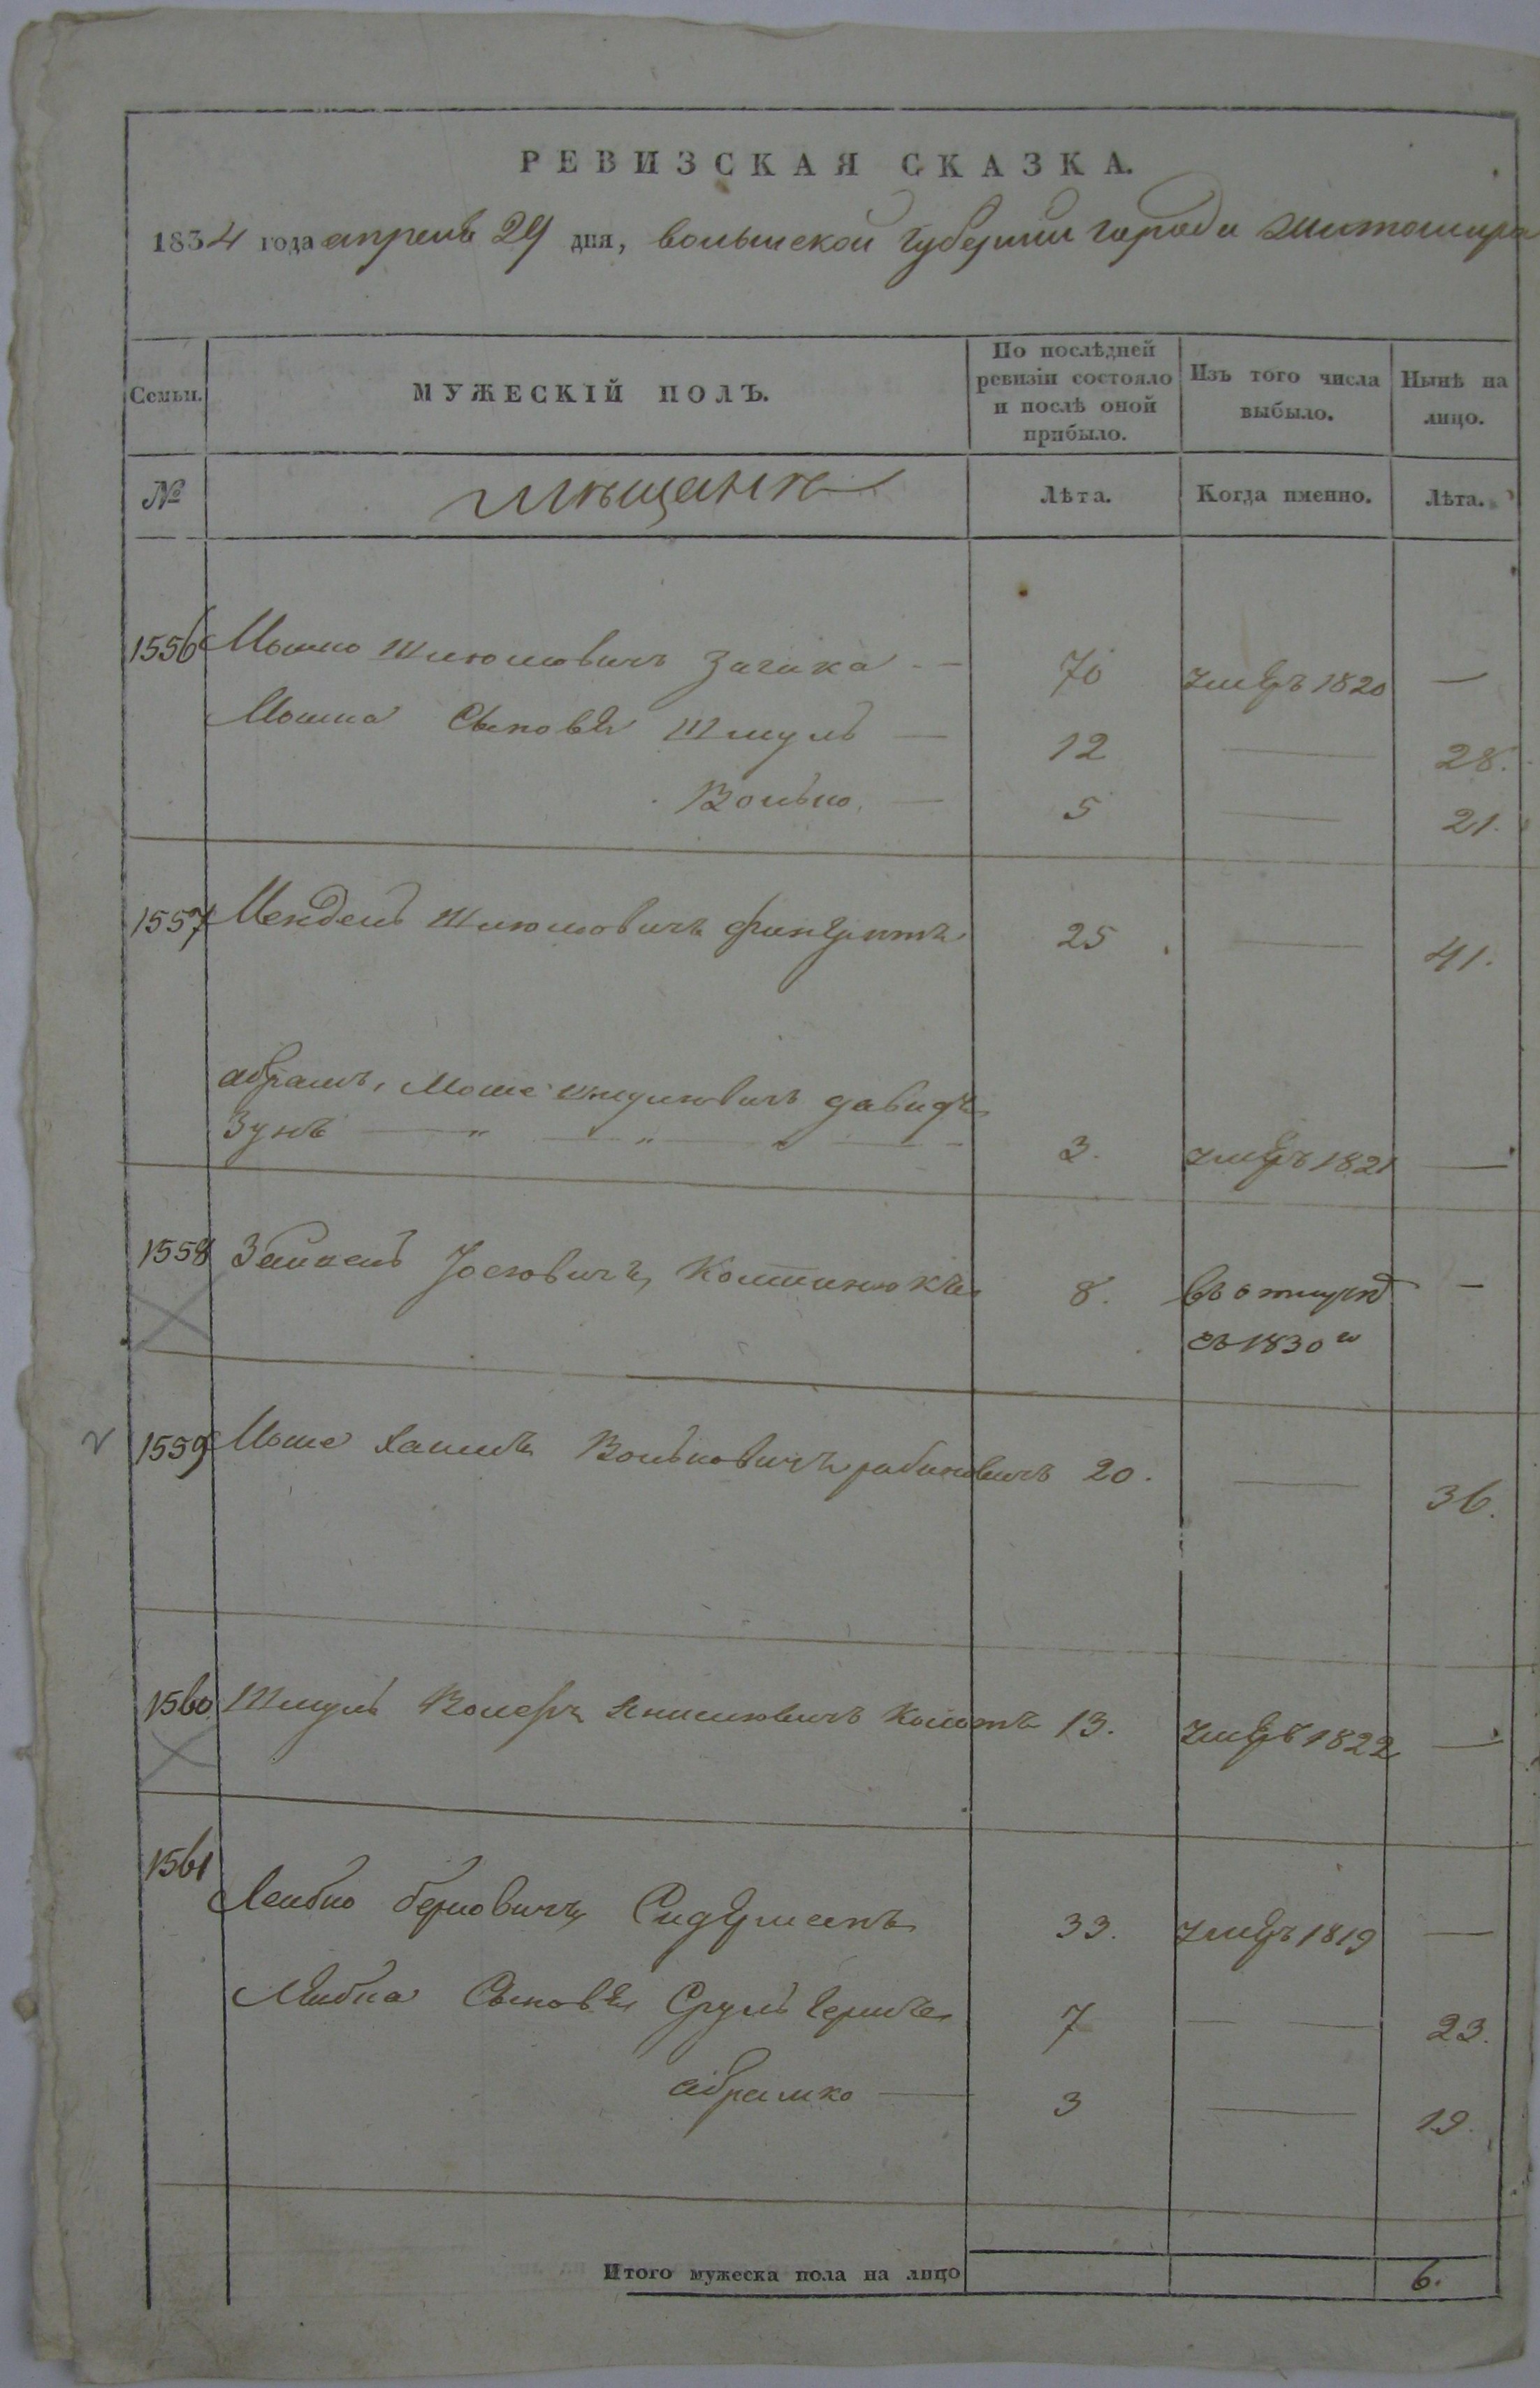 РЕВИЗСКАЯ СКАЗКА.
1834 года апреля 29 дня, волынской губернии города житомира
Семьи.
МУЖЕСКІЙ ПОЛЪ.
По послѣдней ревизіи состояло и послѣ оной прибыло.
Изъ того числа выбыло.
Нынѣ на лицо.
№ мѣщанѣ Лѣта. Когда именно. Лѣта.
1556 Мошко Шлюмовичъ 70 умеръ 1820 —
Мошка Сыновья Шмуль — 12 — 28.
Волько — 5 — 21.
1557 Мендель Шлюмовичъ 25 — 41.
абрамъ, Моше Шмулювичъ давидъ
Зунъ — „ — „ — „ — 3. умеръ 1821 —
1558 Зайвель Иосювичъ, 8. —
съ 1830 го
1559 Моше Хаимъ Вольковичъ рабиновичъ 20. — 36.
1560 Шмуль 13. умеръ 1822 —
1561
Лейбко берковичъ Сидерманъ 33. умеръ 1819 —
Лейбка Сыновья Сруль Гершъ 7 — — 23.
абрамко — 3 — 19.
Итого мужеска пола на лицо 6.